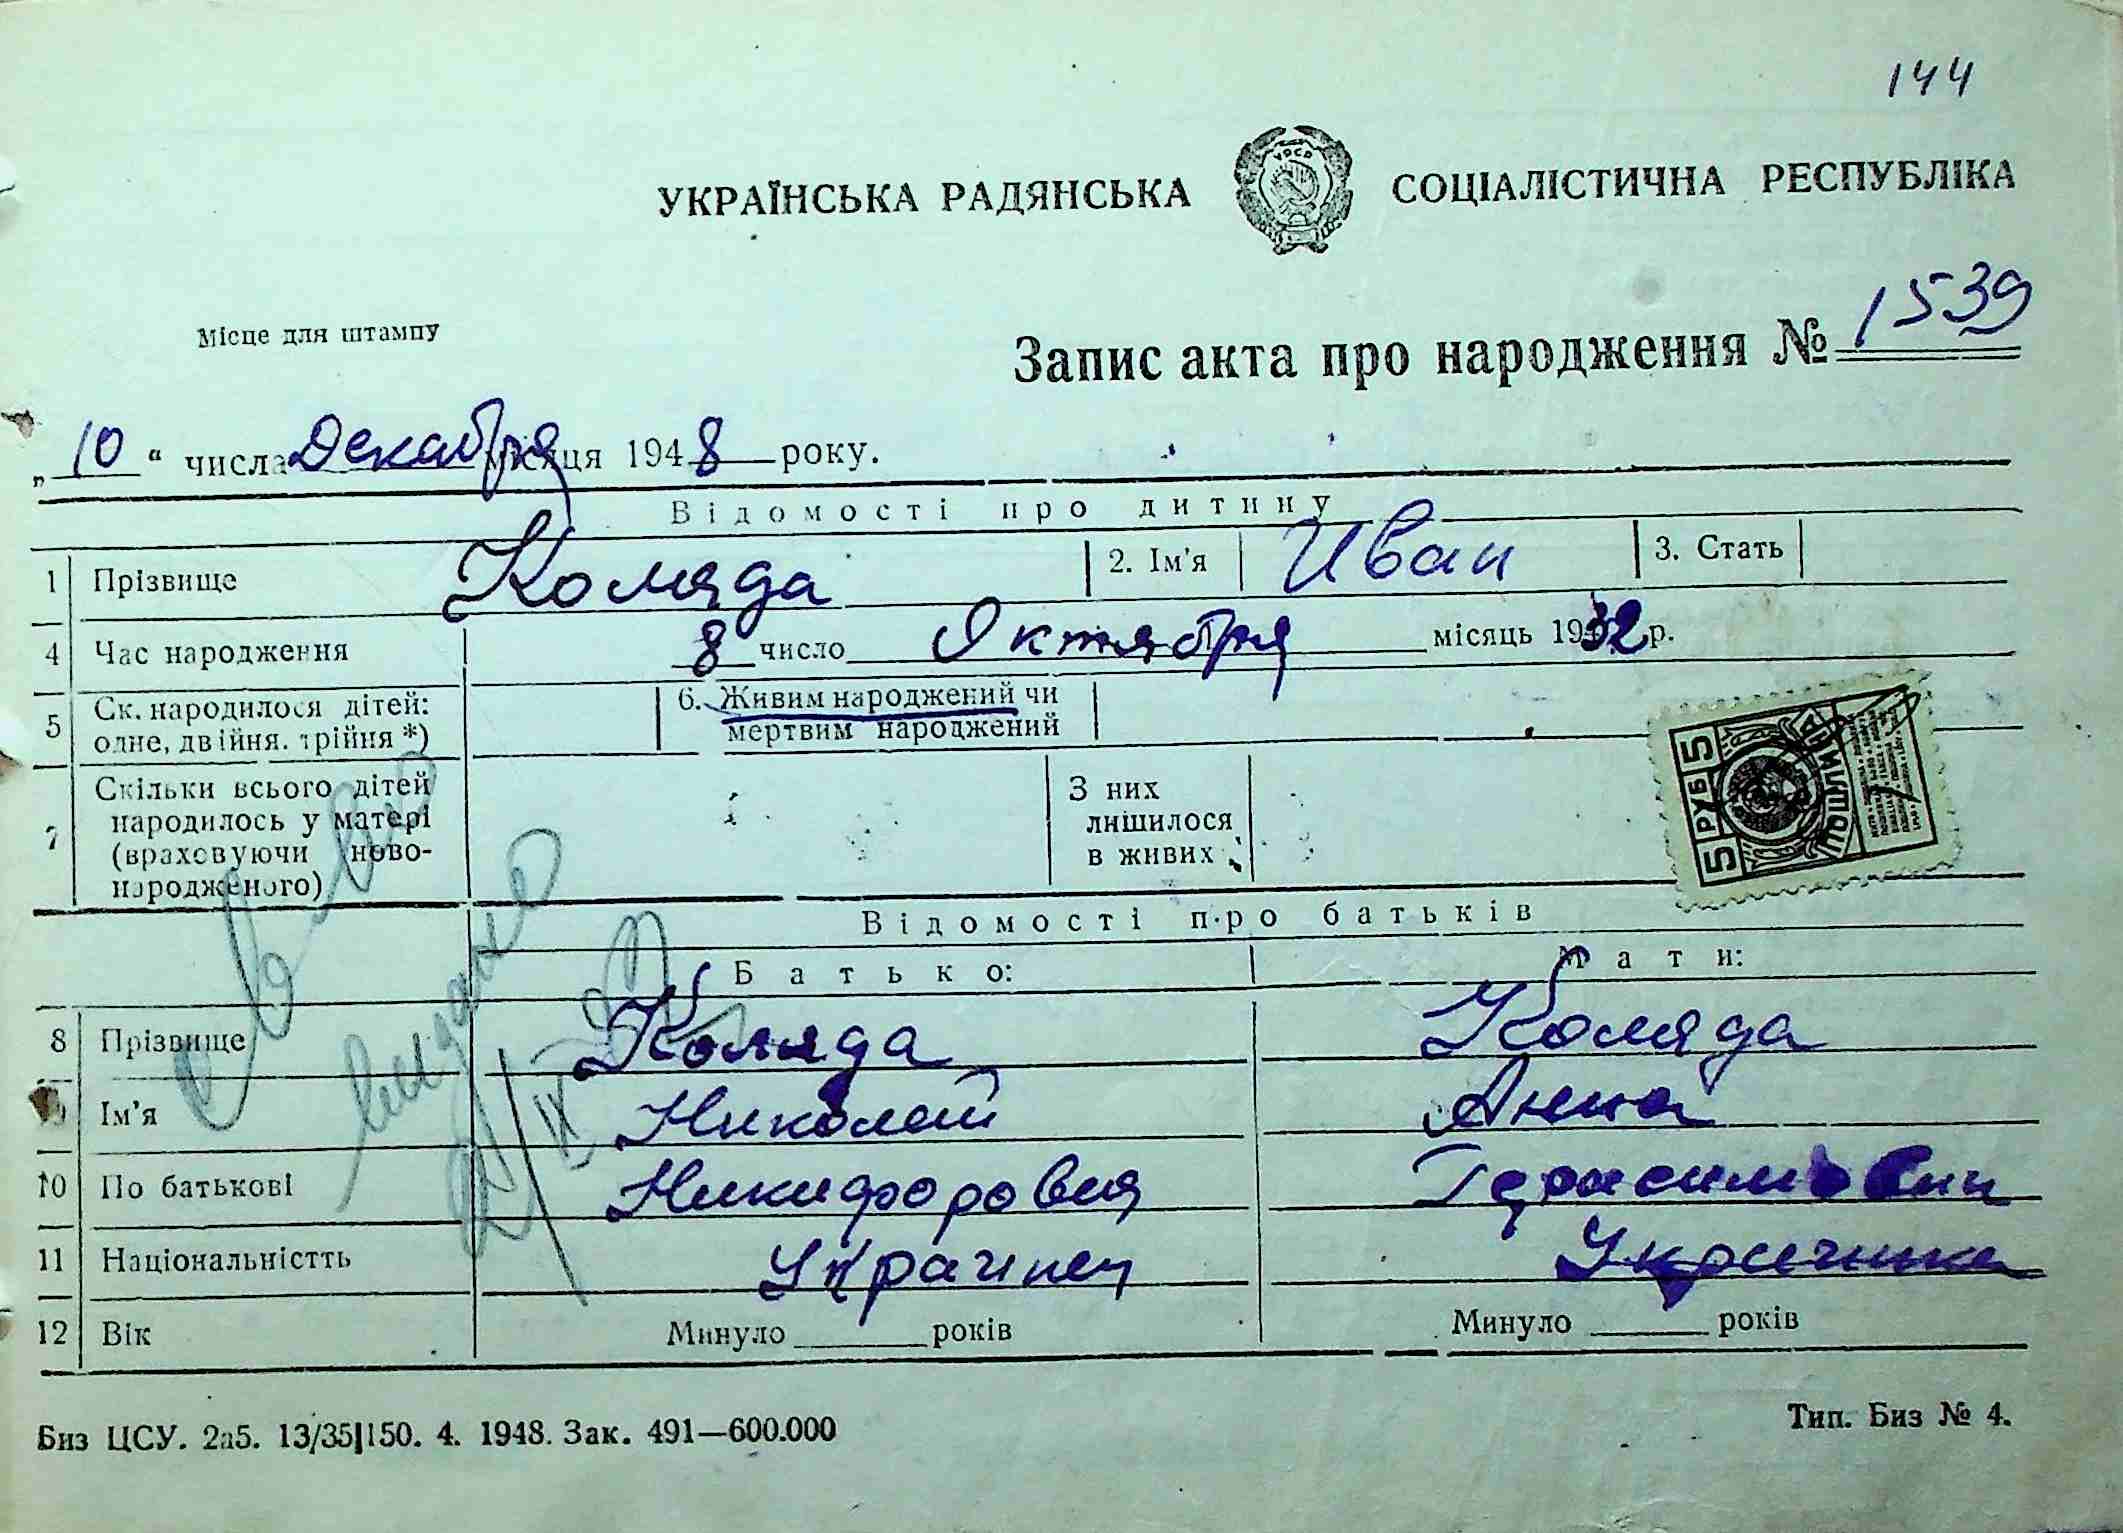 144
УКРАЇНСЬКА РАДЯНСЬКА СОЦІАЛІСТИЧНА РЕСПУБЛІКА
УРСР
Місце для штампу
Запис акта про народження № 1539
„ 10 “ числа Декабря місяця 1948 року.
Відомості про дитину
1 Прізвище Коляда 2. Ім'я Иван 3. Стать
4 Час народження 8 число Октября місяць 1932 р.
5 Ск. народилося дітей: одне, двійня, трійня *) 6. Живим народжений чи мертвим народжений
5 РУБ 5
ПОШЛИНА
7 Скільки всього дітей народилось у матері (враховуючи ново-народженого) З них лишилося в живих
Відомості про батьків
Батько: Мати:
8 Прізвище Коляда Коляда
9 Ім'я Николай Анна
10 По батькові Никифорович Герасимовн
11 Національністть Украинец Украинка
12 Вік Минуло ______ років Минуло ______ років
видано
Биз ЦСУ. 2а5. 13/35|150. 4. 1948. Зак. 491—600.000
Тип. Биз № 4.